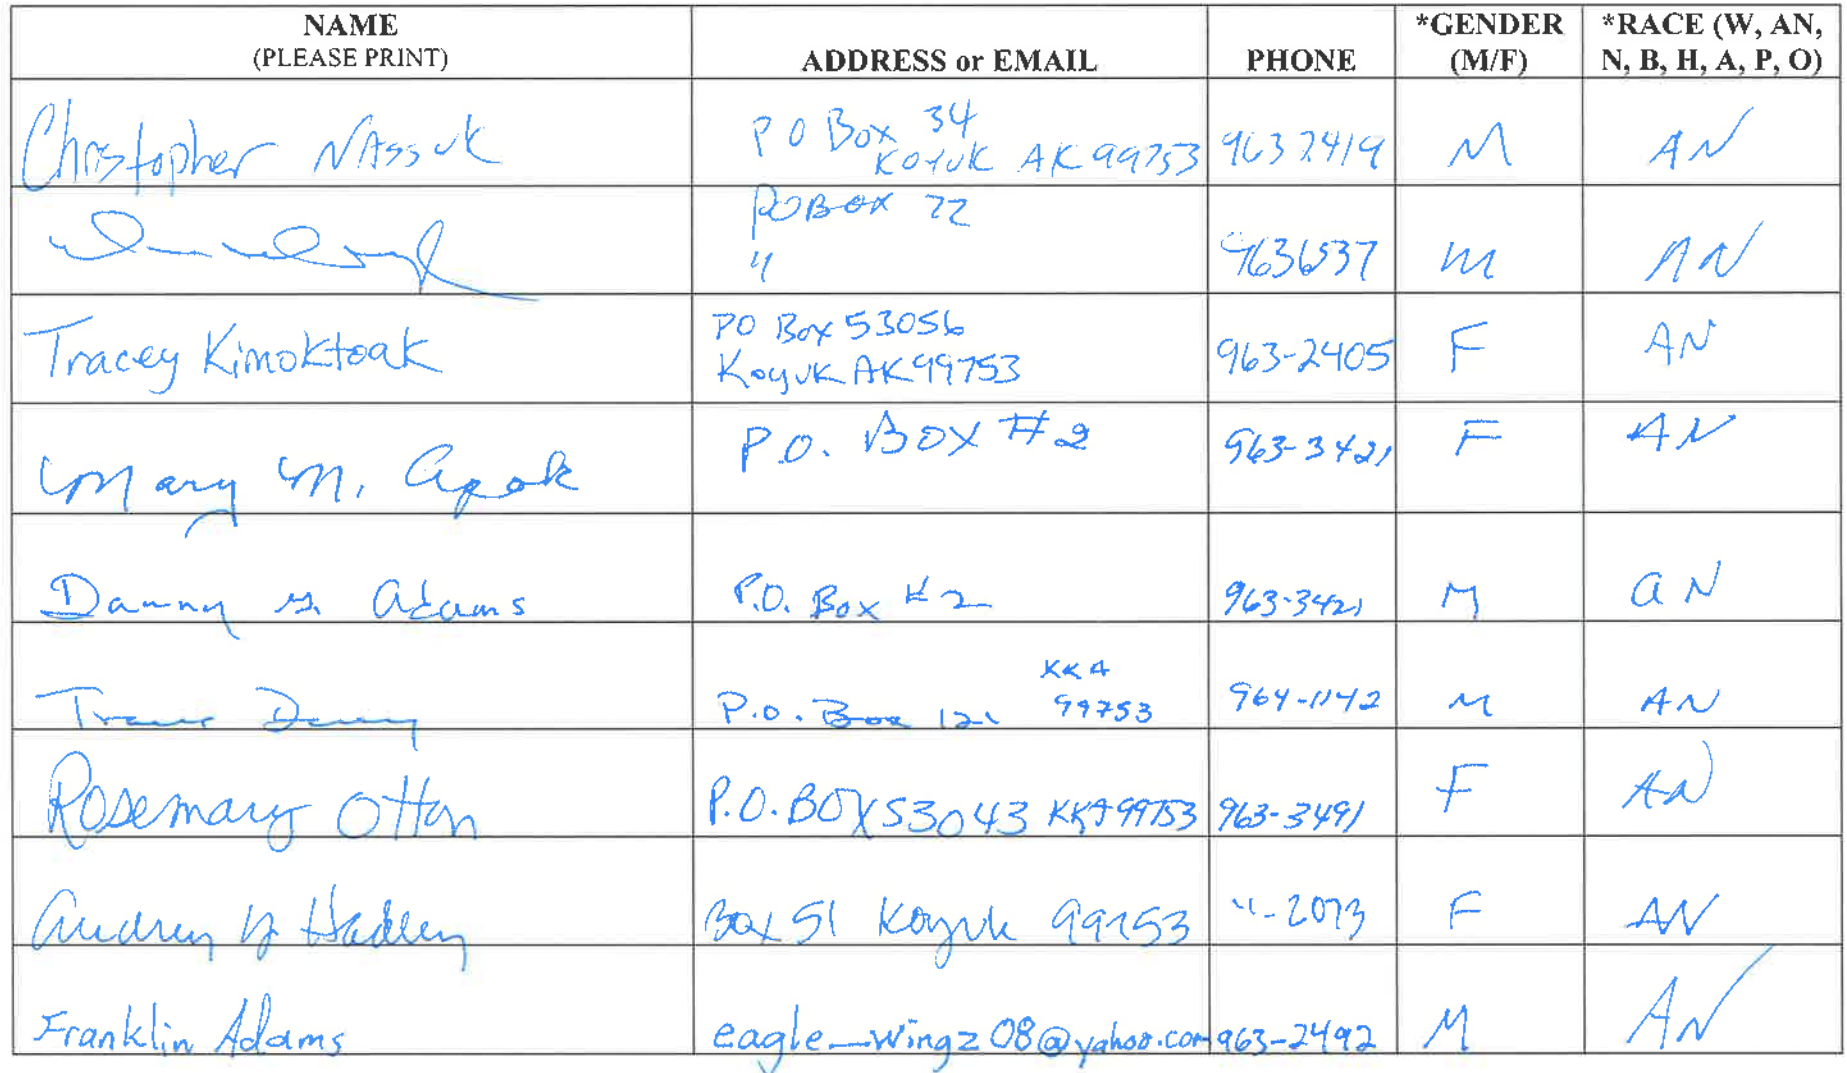 NAME
(PLEASE PRINT)
ADDRESS or EMAIL
PHONE
*GENDER
(M/F)
*RACE (W, AN,
N, B, H, A, P, O)
Christopher NAssuk
P O Box 34
KOYUK AK 99753
963 2419
M
AN
PO BOX 22
"
9636537
M
AN
Tracey Kimoktoak
PO Box 53056
Koyuk AK 99753
963-2405
F
AN
Mary M. Apok
P.O. BOX #2
963-3421
F
AN
Danny Adams
P.O. Box #2
963-3421
M
AN
P.O. Box
KKA
99753
964-1142
M
AN
Rosemary Otton
P.O. BOX 53043 KKA 99753
963-3491
F
AN
Audrey Hadley
Box 51 Koyuk 99753
"-2073
F
AN
Franklin Adams
eagle_wingz08@yahoo.com
963-2492
M
AN